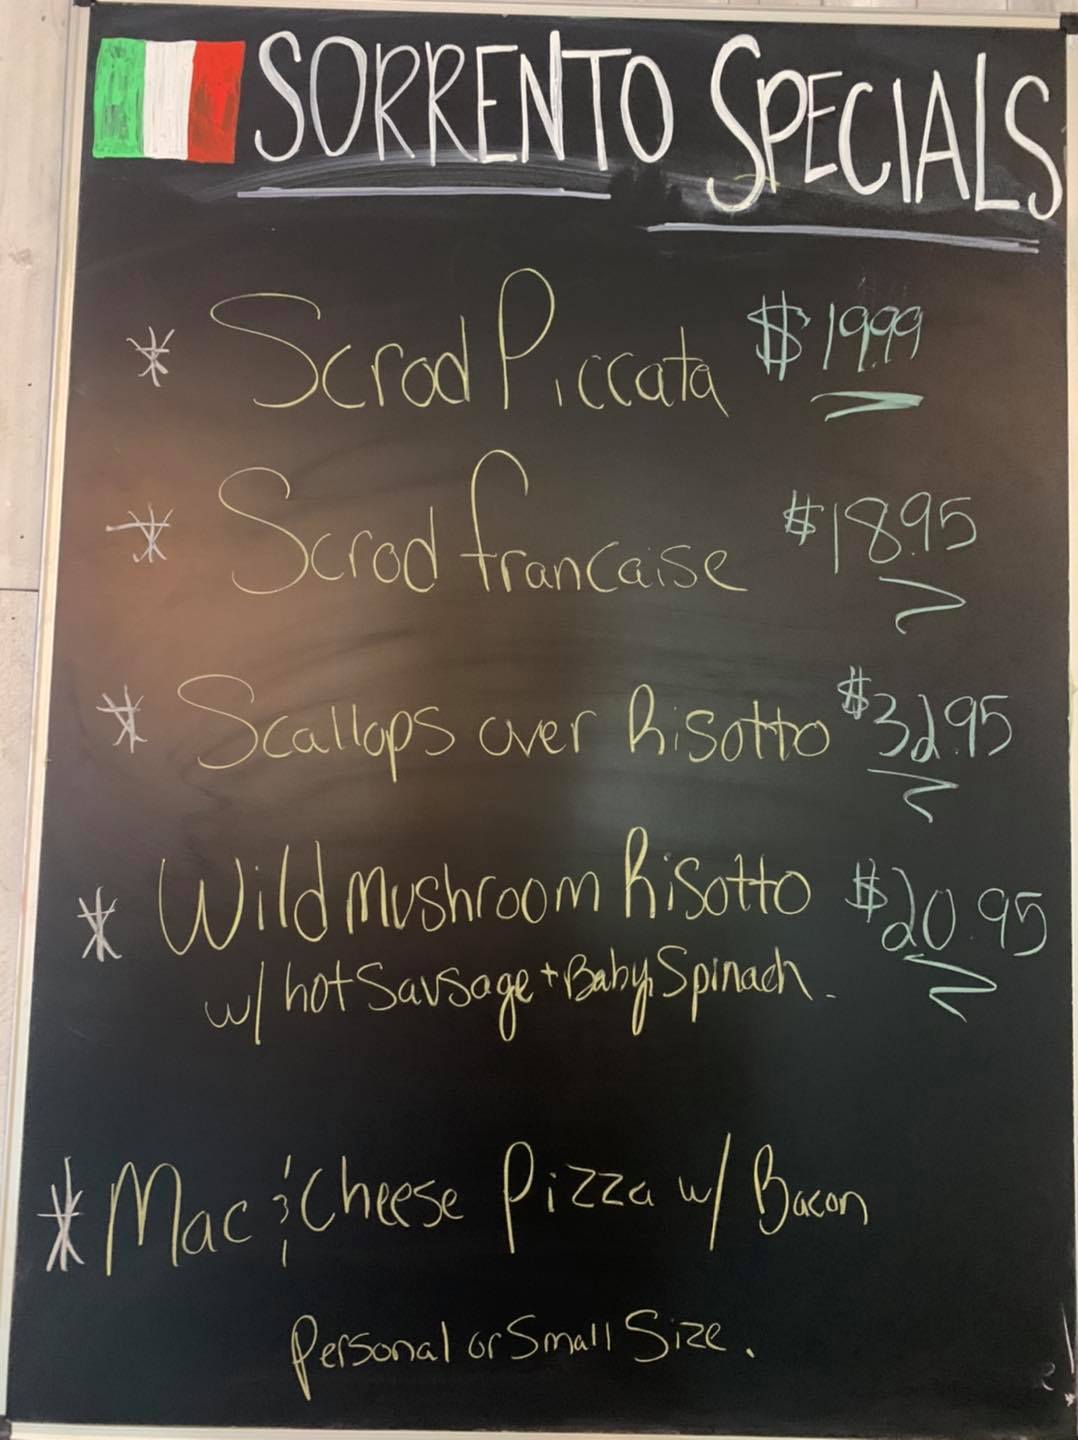 SORRENTO SPECIALS
* Scrod Piccata $19.99
* Scrod francaise $18.95
* Scallops over Risotto $32.95
* Wild mushroom Risotto $20.95
w/ hot Sausage + Baby Spinach.
* Mac & Cheese Pizza w/ Bacon
Personal or Small Size.